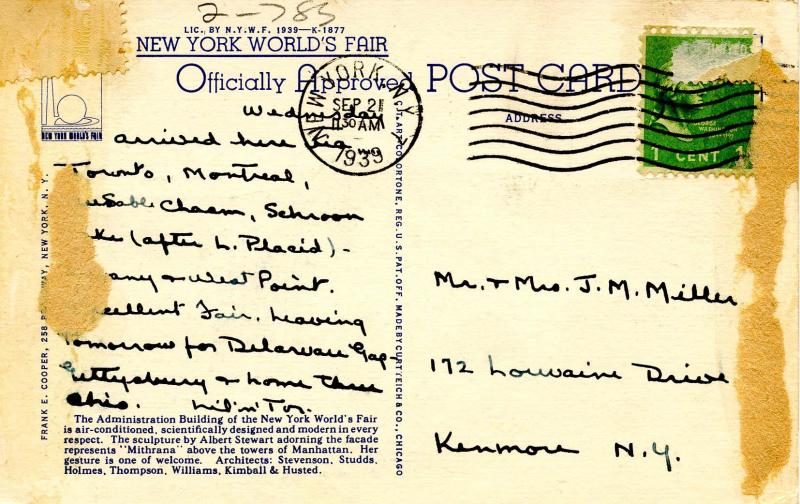 2-783
LIC. BY N.Y.W.F. 1939—K-1877
NEW YORK WORLD'S FAIR
Officially Approved POST CARD
NEW YORK WORLD'S FAIR
NEW YORK, N.Y.
SEP 21
11 30 AM
1939
ADDRESS
1 CENT 1
Wednesday
arrived here via
Toronto, Montreal,
Chasm, Schroon
(after L. Placid) -
& West Point.
Excellent Fair. Leaving
tomorrow for Delaware Gap-
Gettysburg & home thru
Ohio.
FRANK E. COOPER, 258 BROADWAY, NEW YORK, N. Y.
C.T. ART-COLORTONE, REG. U.S. PAT. OFF. MADE BY CURT TEICH & CO., CHICAGO
Mr. & Mrs. J. M. Miller
172 Louvaine Drive
Kenmore N.Y.
The Administration Building of the New York World's Fair
is air-conditioned, scientifically designed and modern in every
respect. The sculpture by Albert Stewart adorning the facade
represents "Mithrana" above the towers of Manhattan. Her
gesture is one of welcome. Architects: Stevenson, Studds,
Holmes, Thompson, Williams, Kimball & Husted.